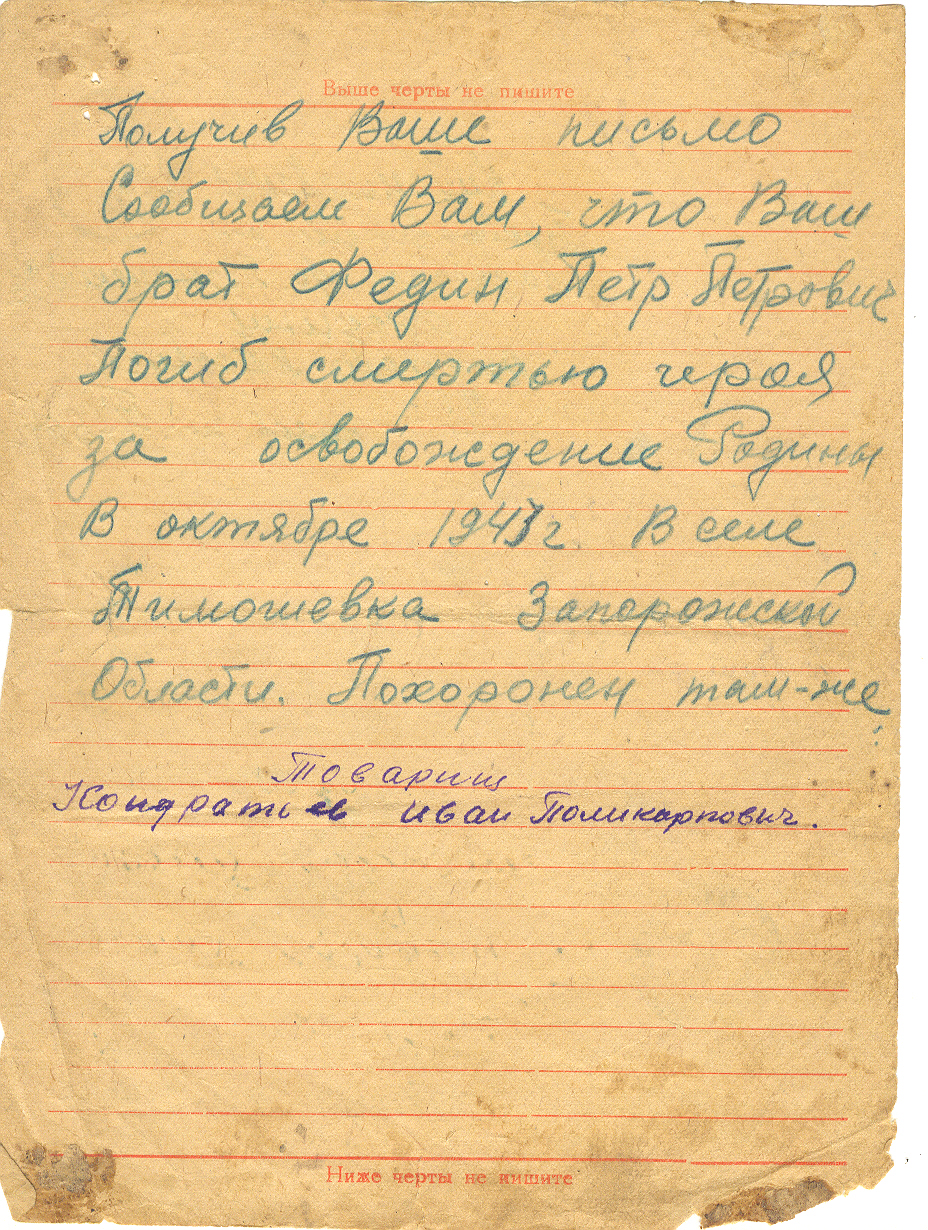 Выше черты не пишите
Получив Ваше письмо
Сообщаем Вам, что Ваш
брат Федин Петр Петрович
Погиб смертью героя
за освобождение Родины
В октябре 1943 г. В селе
Тимошевка Запорожской
Области. Похоронен там-же.
Товарищ
Кондратьев Иван Поликарпович.
Ниже черты не пишите